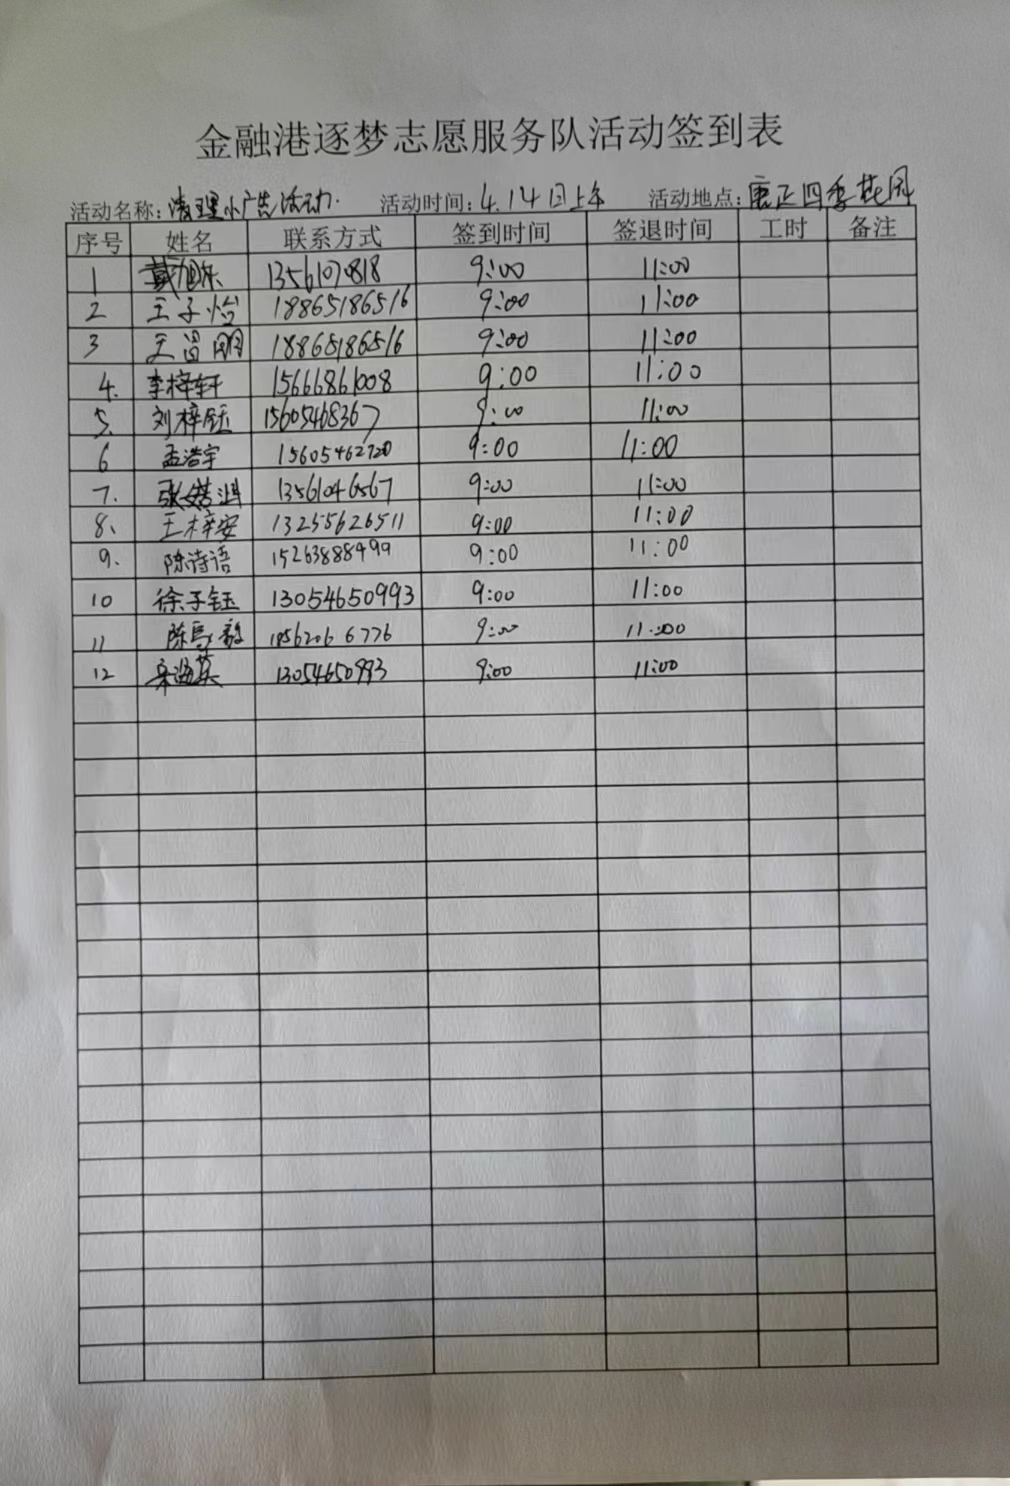 金融港逐梦志愿服务队活动签到表
活动名称：清理小广告活动. 活动时间：4.14日上午 活动地点：唐正四季花园
序号 姓名 联系方式 签到时间 签退时间 工时 备注
1 戴旭东 13561070818 9:00 11:00
2 王子怡 18865186516 9:00 11:00
3 王昌明 18865186516 9:00 11:00
4. 李梓轩 15666861008 9:00 11:00
5. 刘梓钰 15605468367 9:00 11:00
6 孟浩宇 15605462720 9:00 11:00
7. 张 13561046567 9:00 11:00
8、 王梓安 13255626511 9:00 11:00
9. 陈诗语 15263888499 9:00 11:00
10 徐子钰 13054650993 9:00 11:00
11 陈 毅 18562066776 9:00 11:00
12 宋海英 13054650993 9:00 11:00